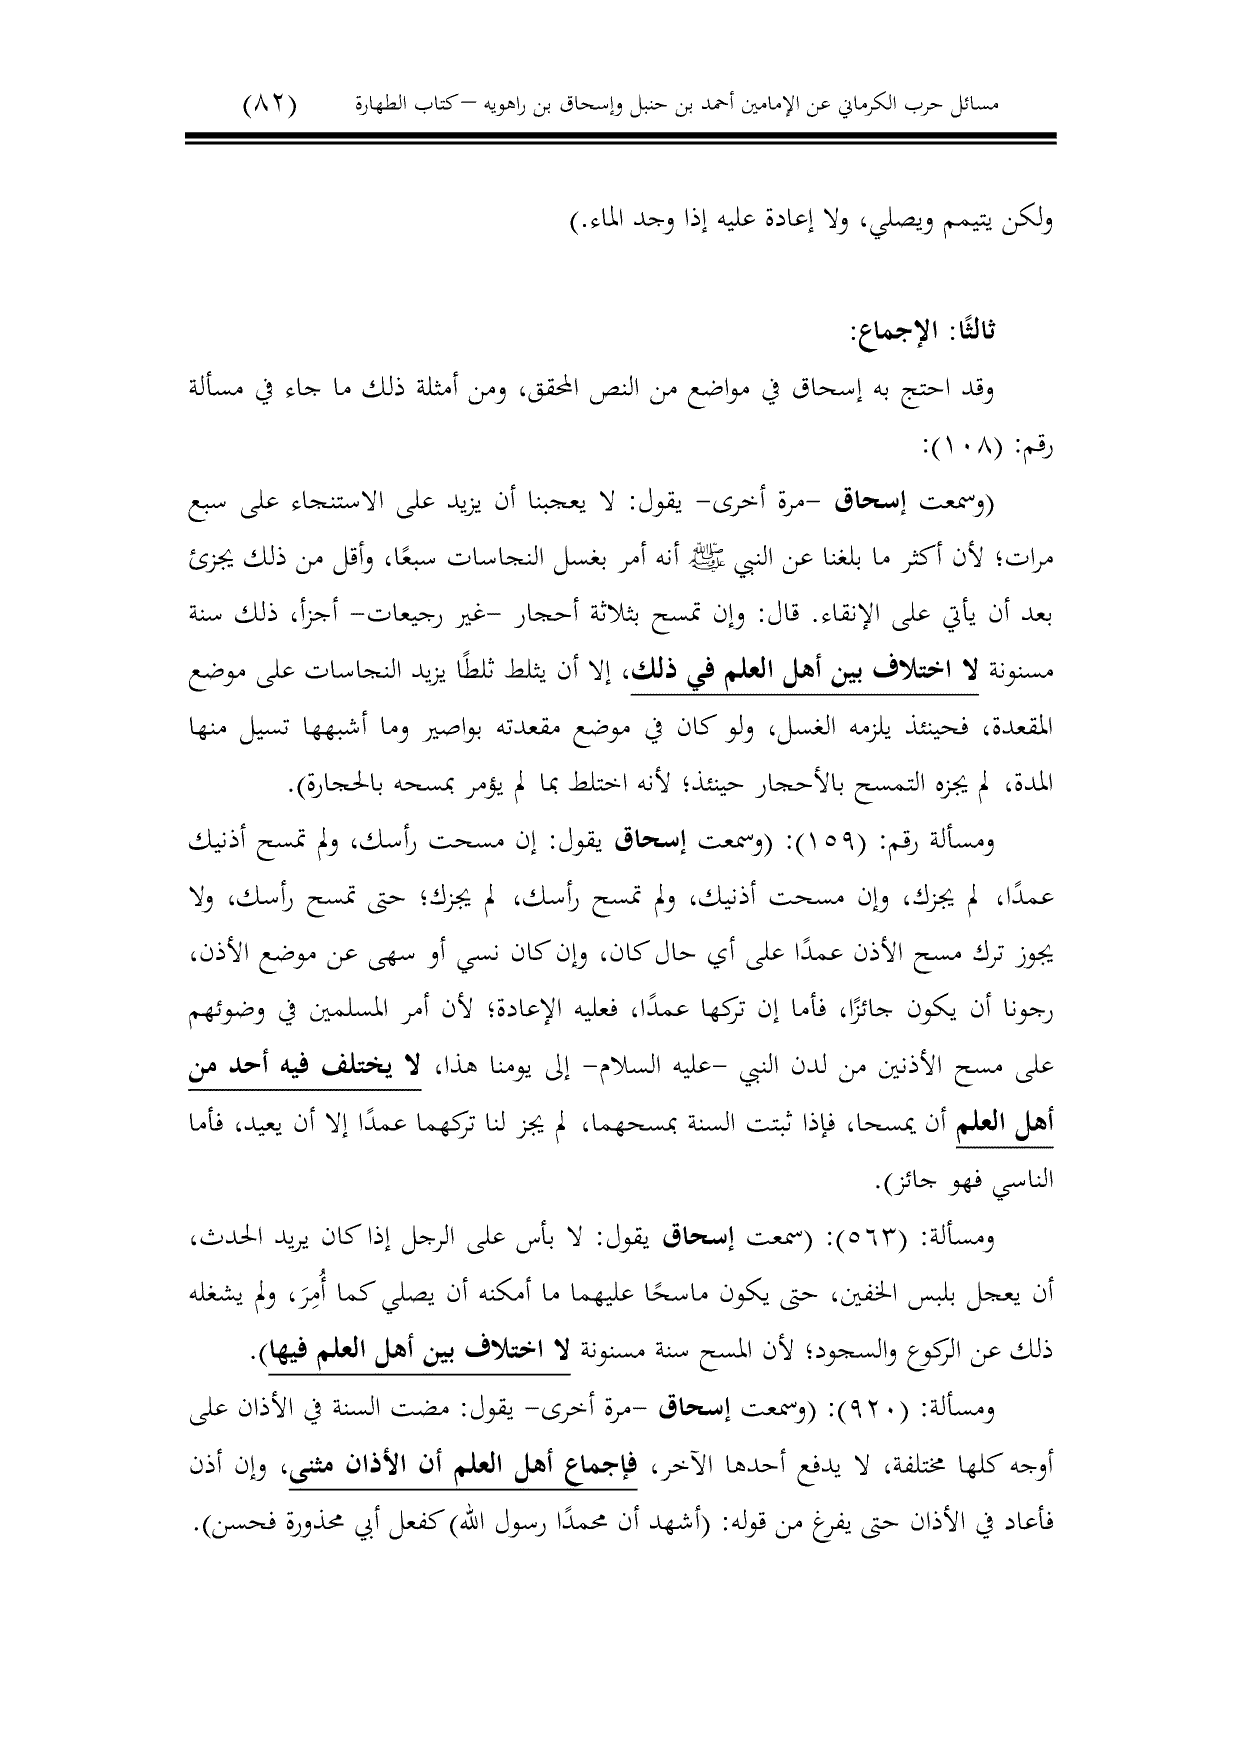 مسائل حرب الكرماني عن الإمامين أحمد بن حنبل وإسحاق بن راهويه –كتاب الطهارة (٨٢)
ولكن يتيمم ويصلي، ولا إعادة عليه إذا وجد الماء.)
ثالثًا: الإجماع:
وقد احتج به إسحاق في مواضع من النص المحقق، ومن أمثلة ذلك ما جاء في مسألة
رقم: (١٠٨):
(وسمعت إسحاق –مرة أخرى– يقول: لا يعجبنا أن يزيد على الاستنجاء على سبع
مرات؛ لأن أكثر ما بلغنا عن النبي ﷺ أنه أمر بغسل النجاسات سبعًا، وأقل من ذلك يجزئ
بعد أن يأتي على الإنقاء. قال: وإن تمسح بثلاثة أحجار –غير رجيعات– أجزأ، ذلك سنة
مسنونة لا اختلاف بين أهل العلم في ذلك، إلا أن يثلط ثلطًا يزيد النجاسات على موضع
المقعدة، فحينئذ يلزمه الغسل، ولو كان في موضع مقعدته بواصير وما أشبهها تسيل منها
المدة، لم يجزه التمسح بالأحجار حينئذ؛ لأنه اختلط بما لم يؤمر بمسحه بالحجارة).
ومسألة رقم: (١٥٩): (وسمعت إسحاق يقول: إن مسحت رأسك، ولم تمسح أذنيك
عمدًا، لم يجزك، وإن مسحت أذنيك، ولم تمسح رأسك، لم يجزك؛ حتى تمسح رأسك، ولا
يجوز ترك مسح الأذن عمدًا على أي حال كان، وإن كان نسي أو سهى عن موضع الأذن،
رجونا أن يكون جائزًا، فأما إن تركها عمدًا، فعليه الإعادة؛ لأن أمر المسلمين في وضوئهم
على مسح الأذنين من لدن النبي –عليه السلام– إلى يومنا هذا، لا يختلف فيه أحد من
أهل العلم أن يمسحا، فإذا ثبتت السنة بمسحهما، لم يجز لنا تركهما عمدًا إلا أن يعيد، فأما
الناسي فهو جائز).
ومسألة: (٥٦٣): (سمعت إسحاق يقول: لا بأس على الرجل إذا كان يريد الحدث،
أن يعجل بلبس الخفين، حتى يكون ماسحًا عليهما ما أمكنه أن يصلي كما أُمِرَ، ولم يشغله
ذلك عن الركوع والسجود؛ لأن المسح سنة مسنونة لا اختلاف بين أهل العلم فيها).
ومسألة: (٩٢٠): (وسمعت إسحاق –مرة أخرى– يقول: مضت السنة في الأذان على
أوجه كلها مختلفة، لا يدفع أحدها الآخر، فإجماع أهل العلم أن الأذان مثنى، وإن أذن
فأعاد في الأذان حتى يفرغ من قوله: (أشهد أن محمدًا رسول الله) كفعل أبي محذورة فحسن).